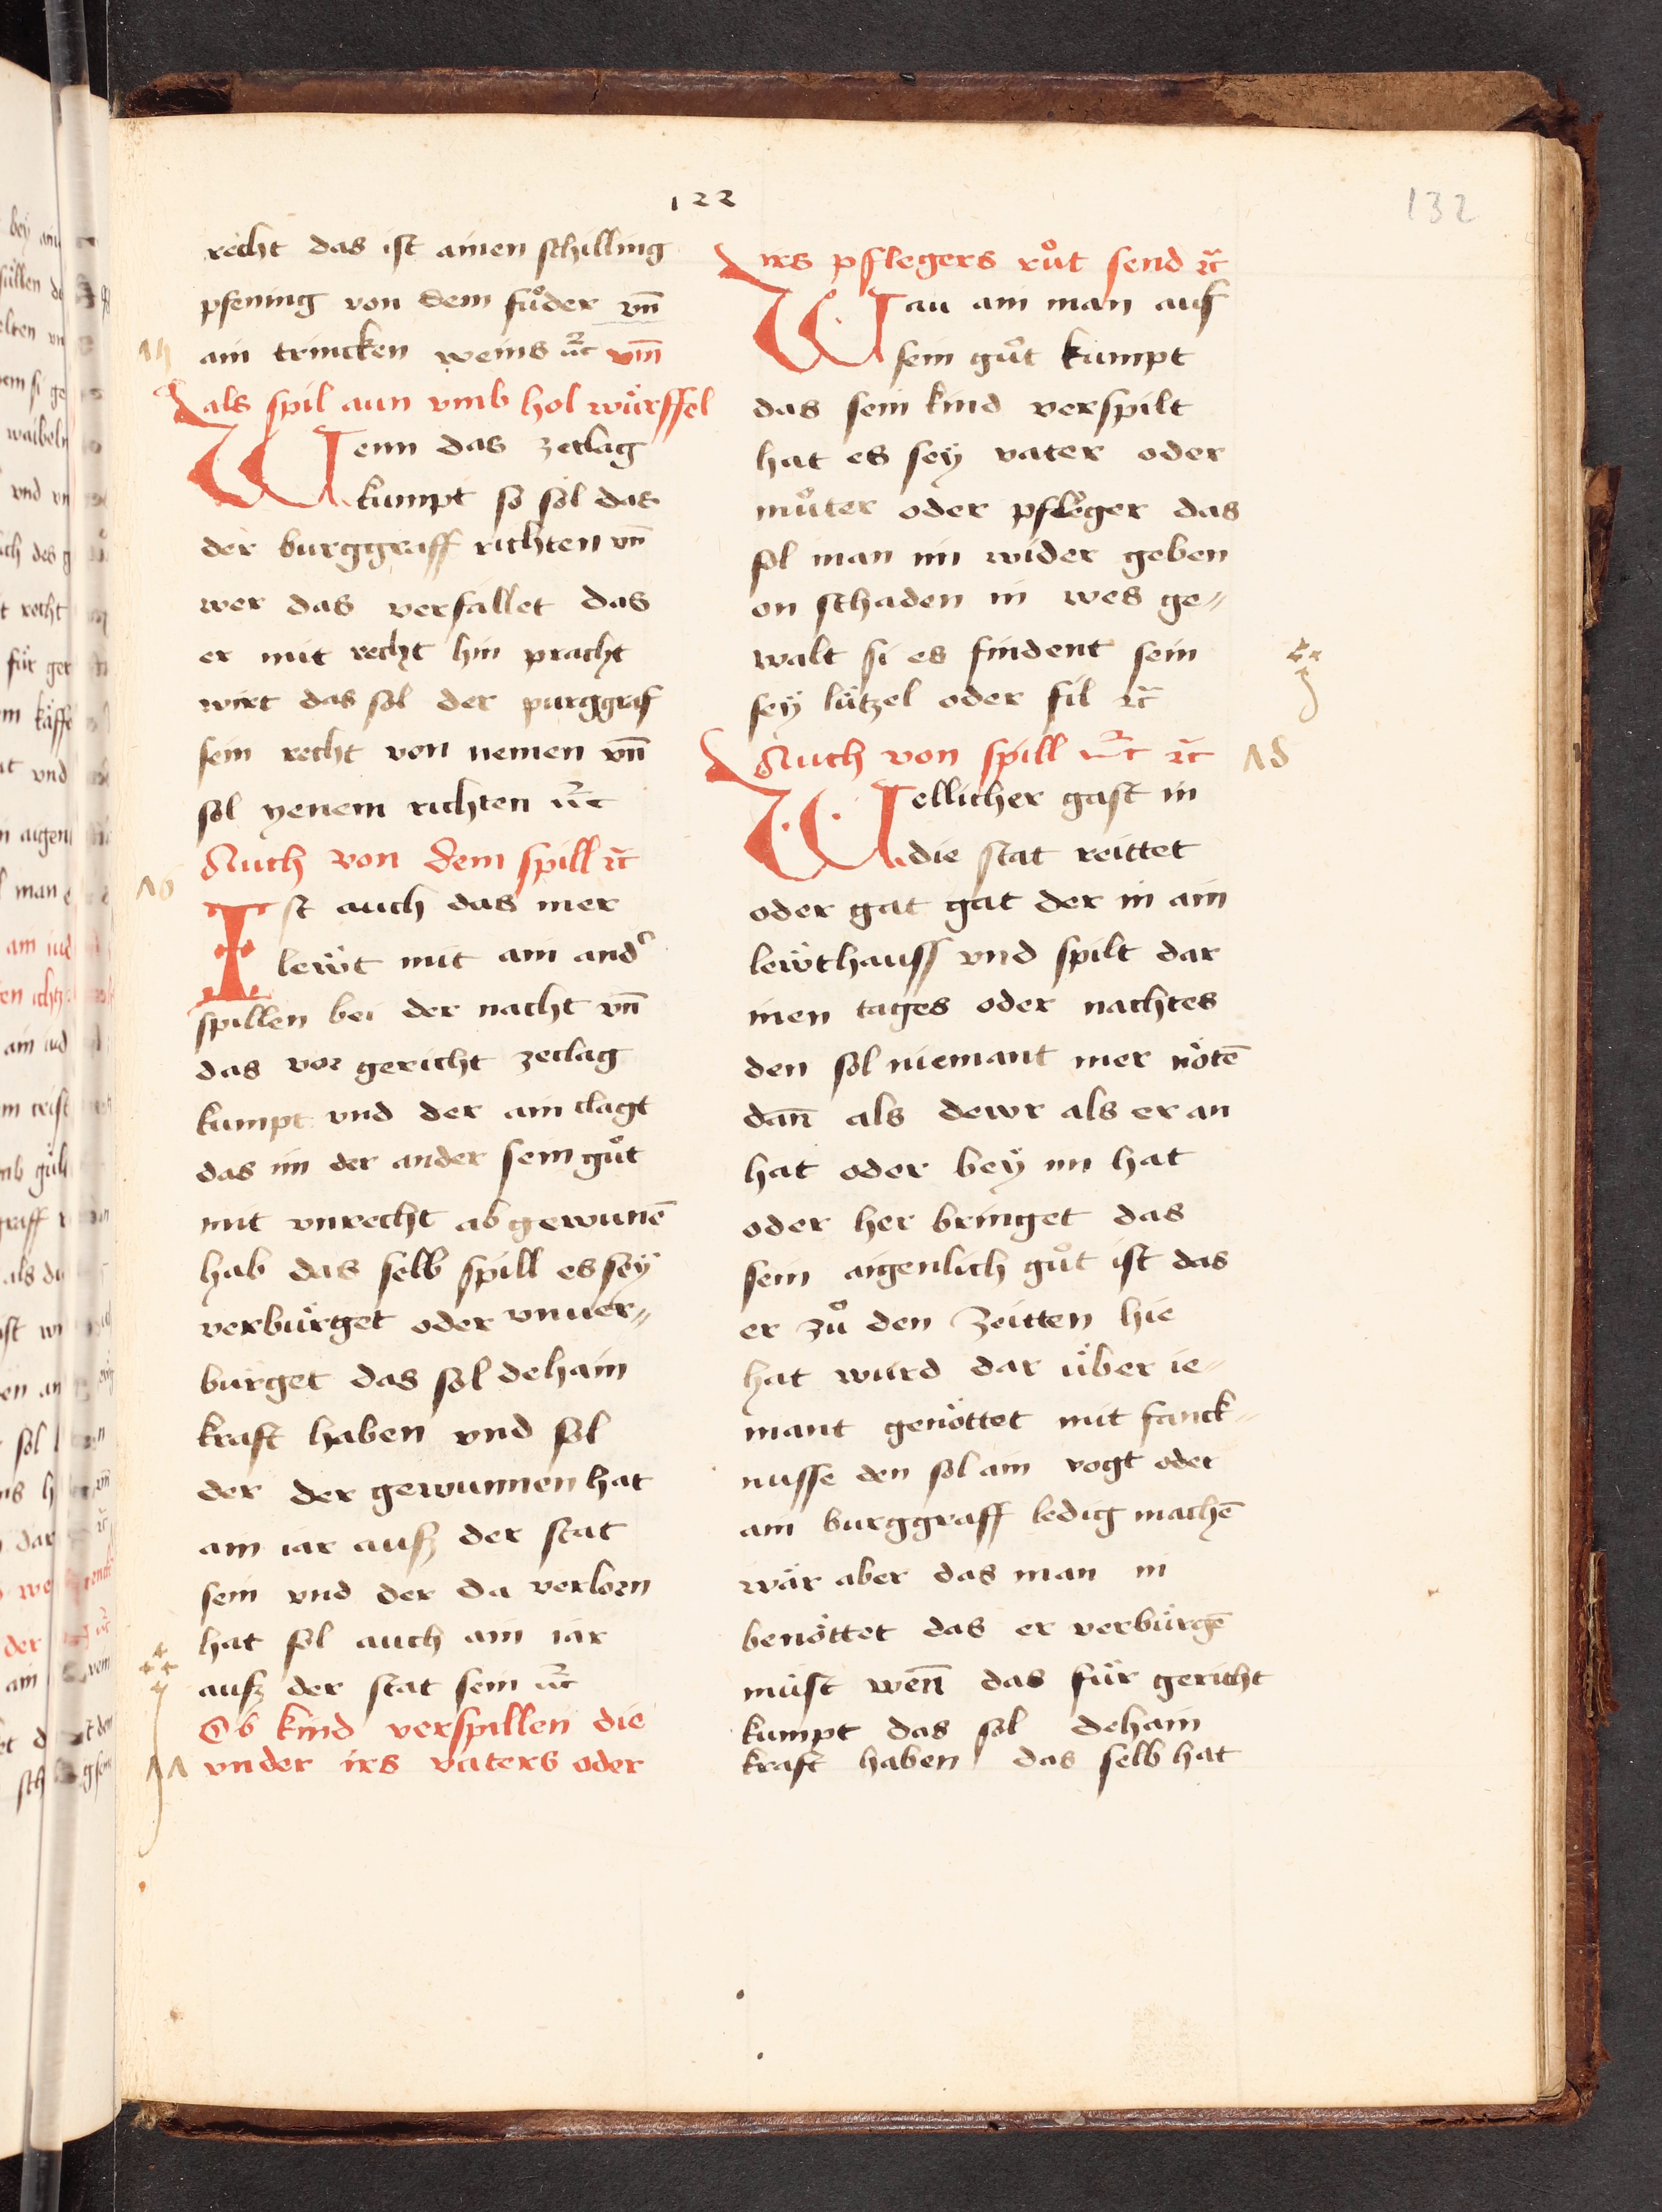 122
132
recht das ist ainen schilling
pfening von dem fůder vn̄
ain trincken weins ꝛc̄ vm̄
als spil aun vmb hol würffel
Wenn das zeclag
kumpt so sol das
der burggraff richten vn̄
wer das verfallet das
er mit recht hin pracht
wirt das sol der purggraf
sein recht von nemen vn̄
sol yenem richten ꝛc̄
Auch von dem spill ꝛc̄
16
Ist auch das mer
lewt mit ain and'
spillen bei der nacht vn̄
das vor gericht zeclag
kumpt vnd der ain clagt
das im der ander sein gůt
mit vnrecht ab gewunē
hab das selb spill es sey
verbürget oder vnuer„
bürget das sol dehain
kraft haben vnd sol
der der gewunnen hat
ain iar ausz der stat
sein vnd der da verlorn
hat sol auch ain iar
ausz der stat sein ꝛc̄
Ob kind verspillen die
vnder irs vaters oder
irs pflegers růt send ꝛc̄
Wau ain man auf
sein gůt kumpt
das sein kind verspilt
hat es sey vater oder
můter oder pfleger das
sol man im wider geben
on schaden in wes ge„
walt si es findent sein
sey lützel oder fil ꝛc̄
Auch von spill ꝛc̄ ꝛc̄
18
Wellicher gast in
die stat reittet
oder gat gat der in ain
lewthauss vnd spilt dar
inen tages oder nachtes
den sol niemant mer nötē
dan̄ als dewr als er an
hat oder bey im hat
oder her bringet das
sein aigenlich gůt ist das
er zů den zeitten hie
hat wurd dar über ie„
mant genöttet mit fanck„
nusse den sol ain vogt oder
ain burggraff ledig machē
wär aber das man in
benöttet das er verbürgē
müst wen̄ das für gericht
kumpt das sol dehain
kraft haben das selb hat